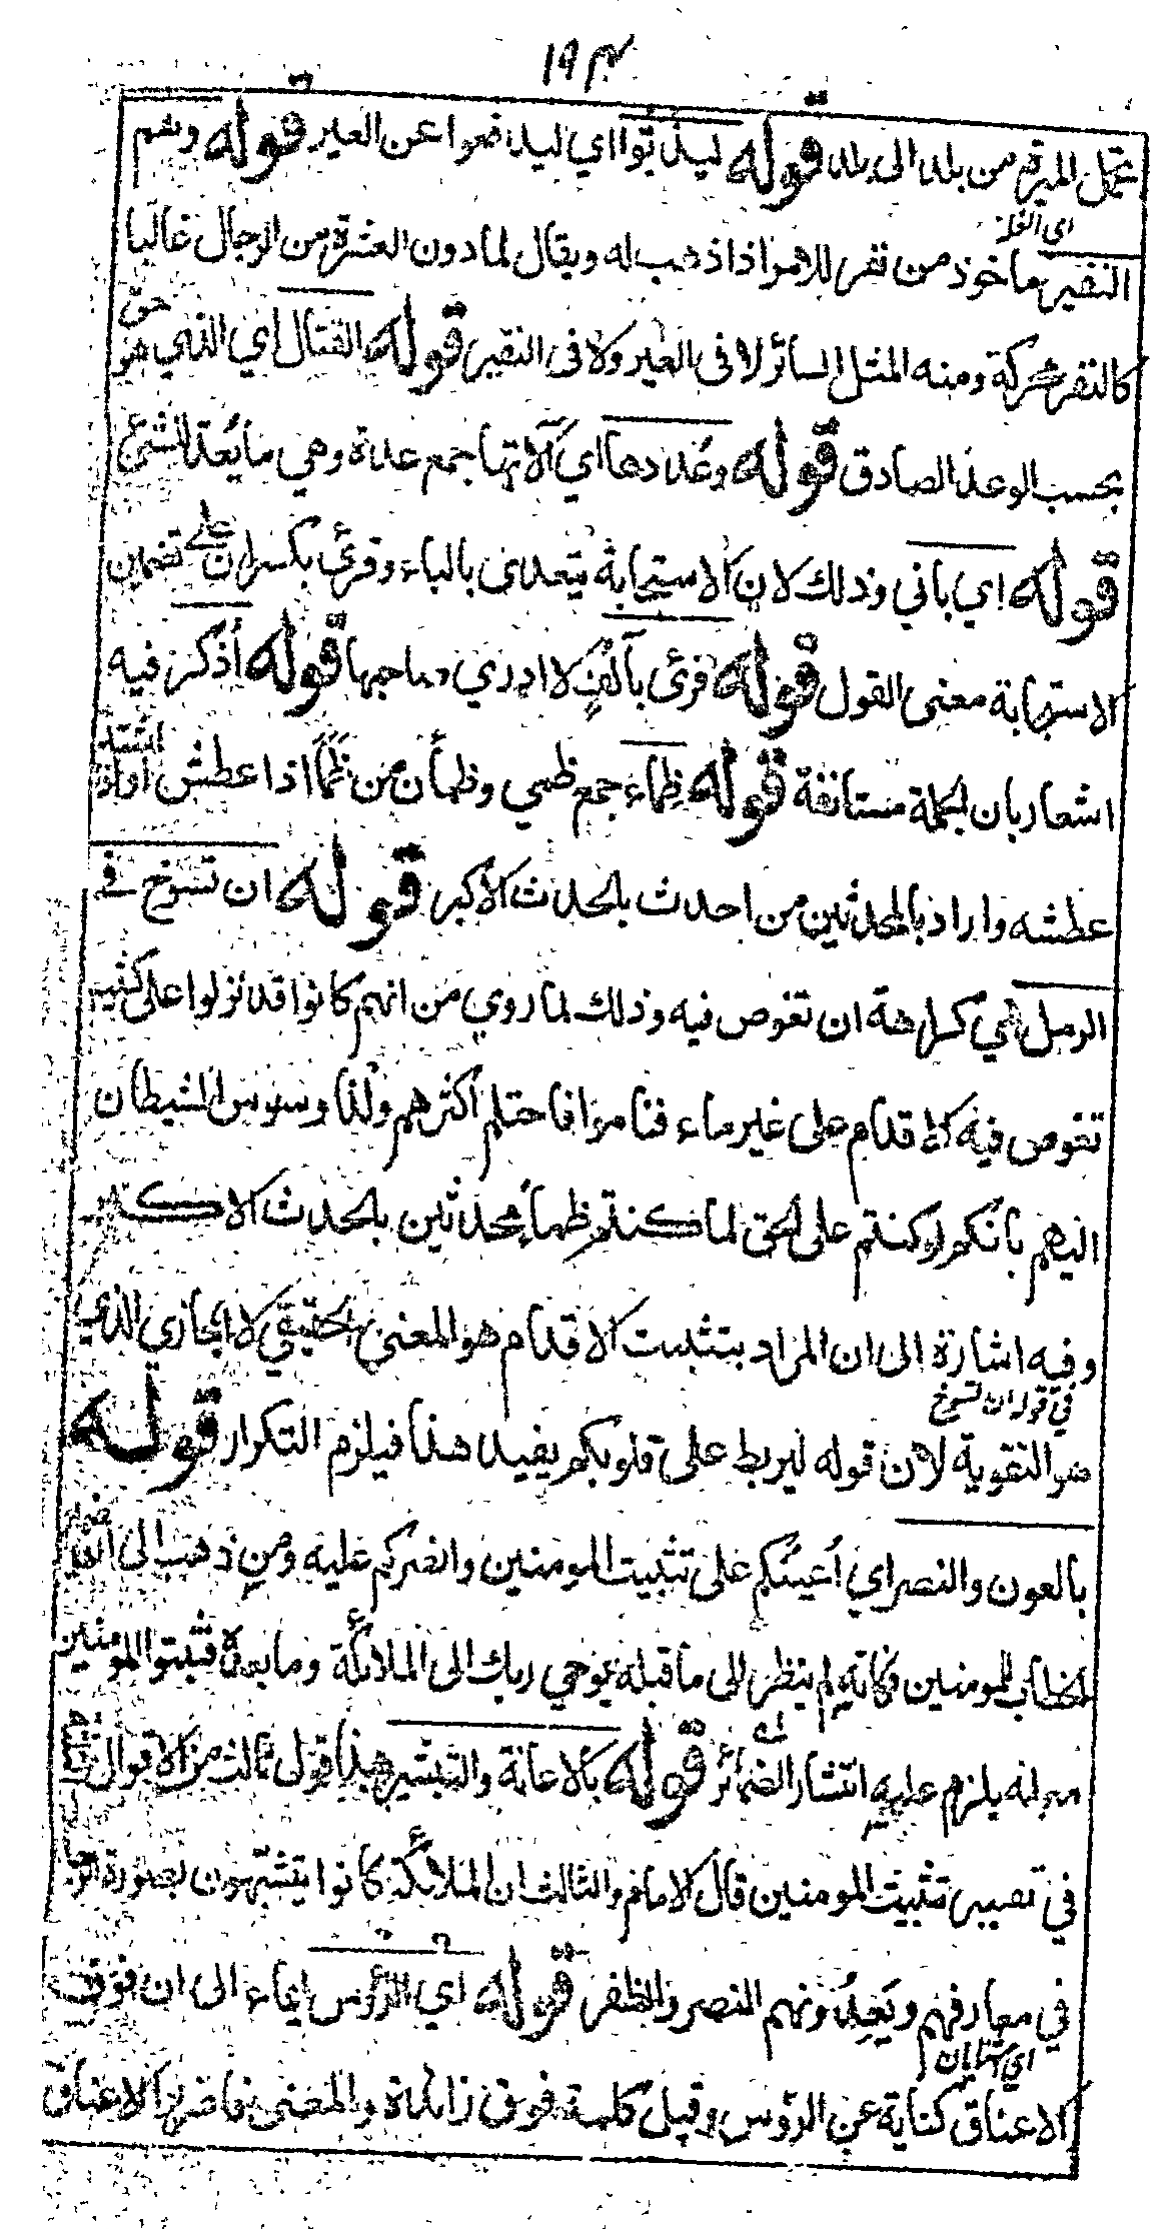 ١٩٣
تحمل الميرة من بلد الى بلد قوله ليذبوا اي ليدافعوا عن العير قوله وهم
اى القلة
النفير ماخوذ من نفر للامر اذا ذهب له ويقال لما دون العشرة من الرجال غالبا
كالنفر محركة ومنه المثل السائر لا فى العير ولا فى النفير قوله القتال اي الذي هو حق
بحسب الوعد الصادق قوله وعددها اي آلاتها جمع عدة وهي ما يعد لشئ
قوله اي باني وذلك لان الاستجابة يتعدى بالباء وقرئ بكسر ان على تضمين
الاستجابة معنى القول قوله قرئ بآلف لا ادري صاحبها قوله أذكر فيه
اشعار بان الجملة مستانفة قوله ظماء جمع ظمي وظمأن من ظمأ اذا عطش او اذا اشتد
عطشه واراد بالمحدثين من احدث بالحدث الاكبر قوله ان تسوخ في
الرمل اي كراهة ان تغوص فيه وذلك لما روي من انهم كانوا قد نزلوا على كثيب
تغوص فيه الاقدام على غير ماء فناموا فاحتلم اكثرهم ولذا وسوس الشيطان
اليهم بانكم لو كنتم على الحق لما كنتم ظمأ محدثين بالحدث الاكبر
وفيه اشارة الى ان المراد بتثبيت الاقدام هو المعنى الحقيقي لا المجازي الذي
في قوله ان تسوخ
هو التقوية لان قوله ليربط على قلوبكم يفيد هذا فيلزم التكرار قوله
بالعون والنصر اي أعينكم على تثبيت المومنين وانصركم عليه ومن ذهب الى ان
الخطاب للمومنين فكانه لم ينظر الى ما قبله يوحي ربك الى الملائكة وما بعده فثبتوا المومنين
مع انه يلزم عليه انتشار الضمائر قوله بالاعانة والتبشير هذا قول ثالث من الاقوال
في تفسير تثبيت المومنين قال الامام والثالث ان الملائكة كانوا يتشبهون بصورة
في معارفهم ويعدونهم النصر والظفر قوله اي الرؤس ايماء الى ان فوق
الاعناق كناية عن الرؤس وقيل كلمة فوق زائدة والمعنى فاضربوا الاعناق